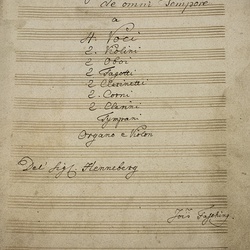 de omni Tempore
a
4. Voci
2. Violini
2 Oboi
2 Fagotti
2 Clarinetti
2. Corni
2 Clarini
Tympani
Organo e Violon
Del Sig Henneberg